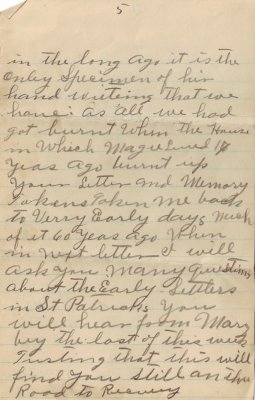 5
in the long ago it is the
Only Specimen of his
hand writing that we
have: as all we had
got burnt When the House
in Which Magie Lived 14
yeas ago burnt up
Your Letter and Memory
Tokens taken me back
to Verry Early days much
of it 60 Yeas ago When
in next letter I will
ask you many questions
about the Early Settlers
in St Patricks You
will hear from Mary
by the last of this week
Trusting that this will
find you still on the
Road to Recovery